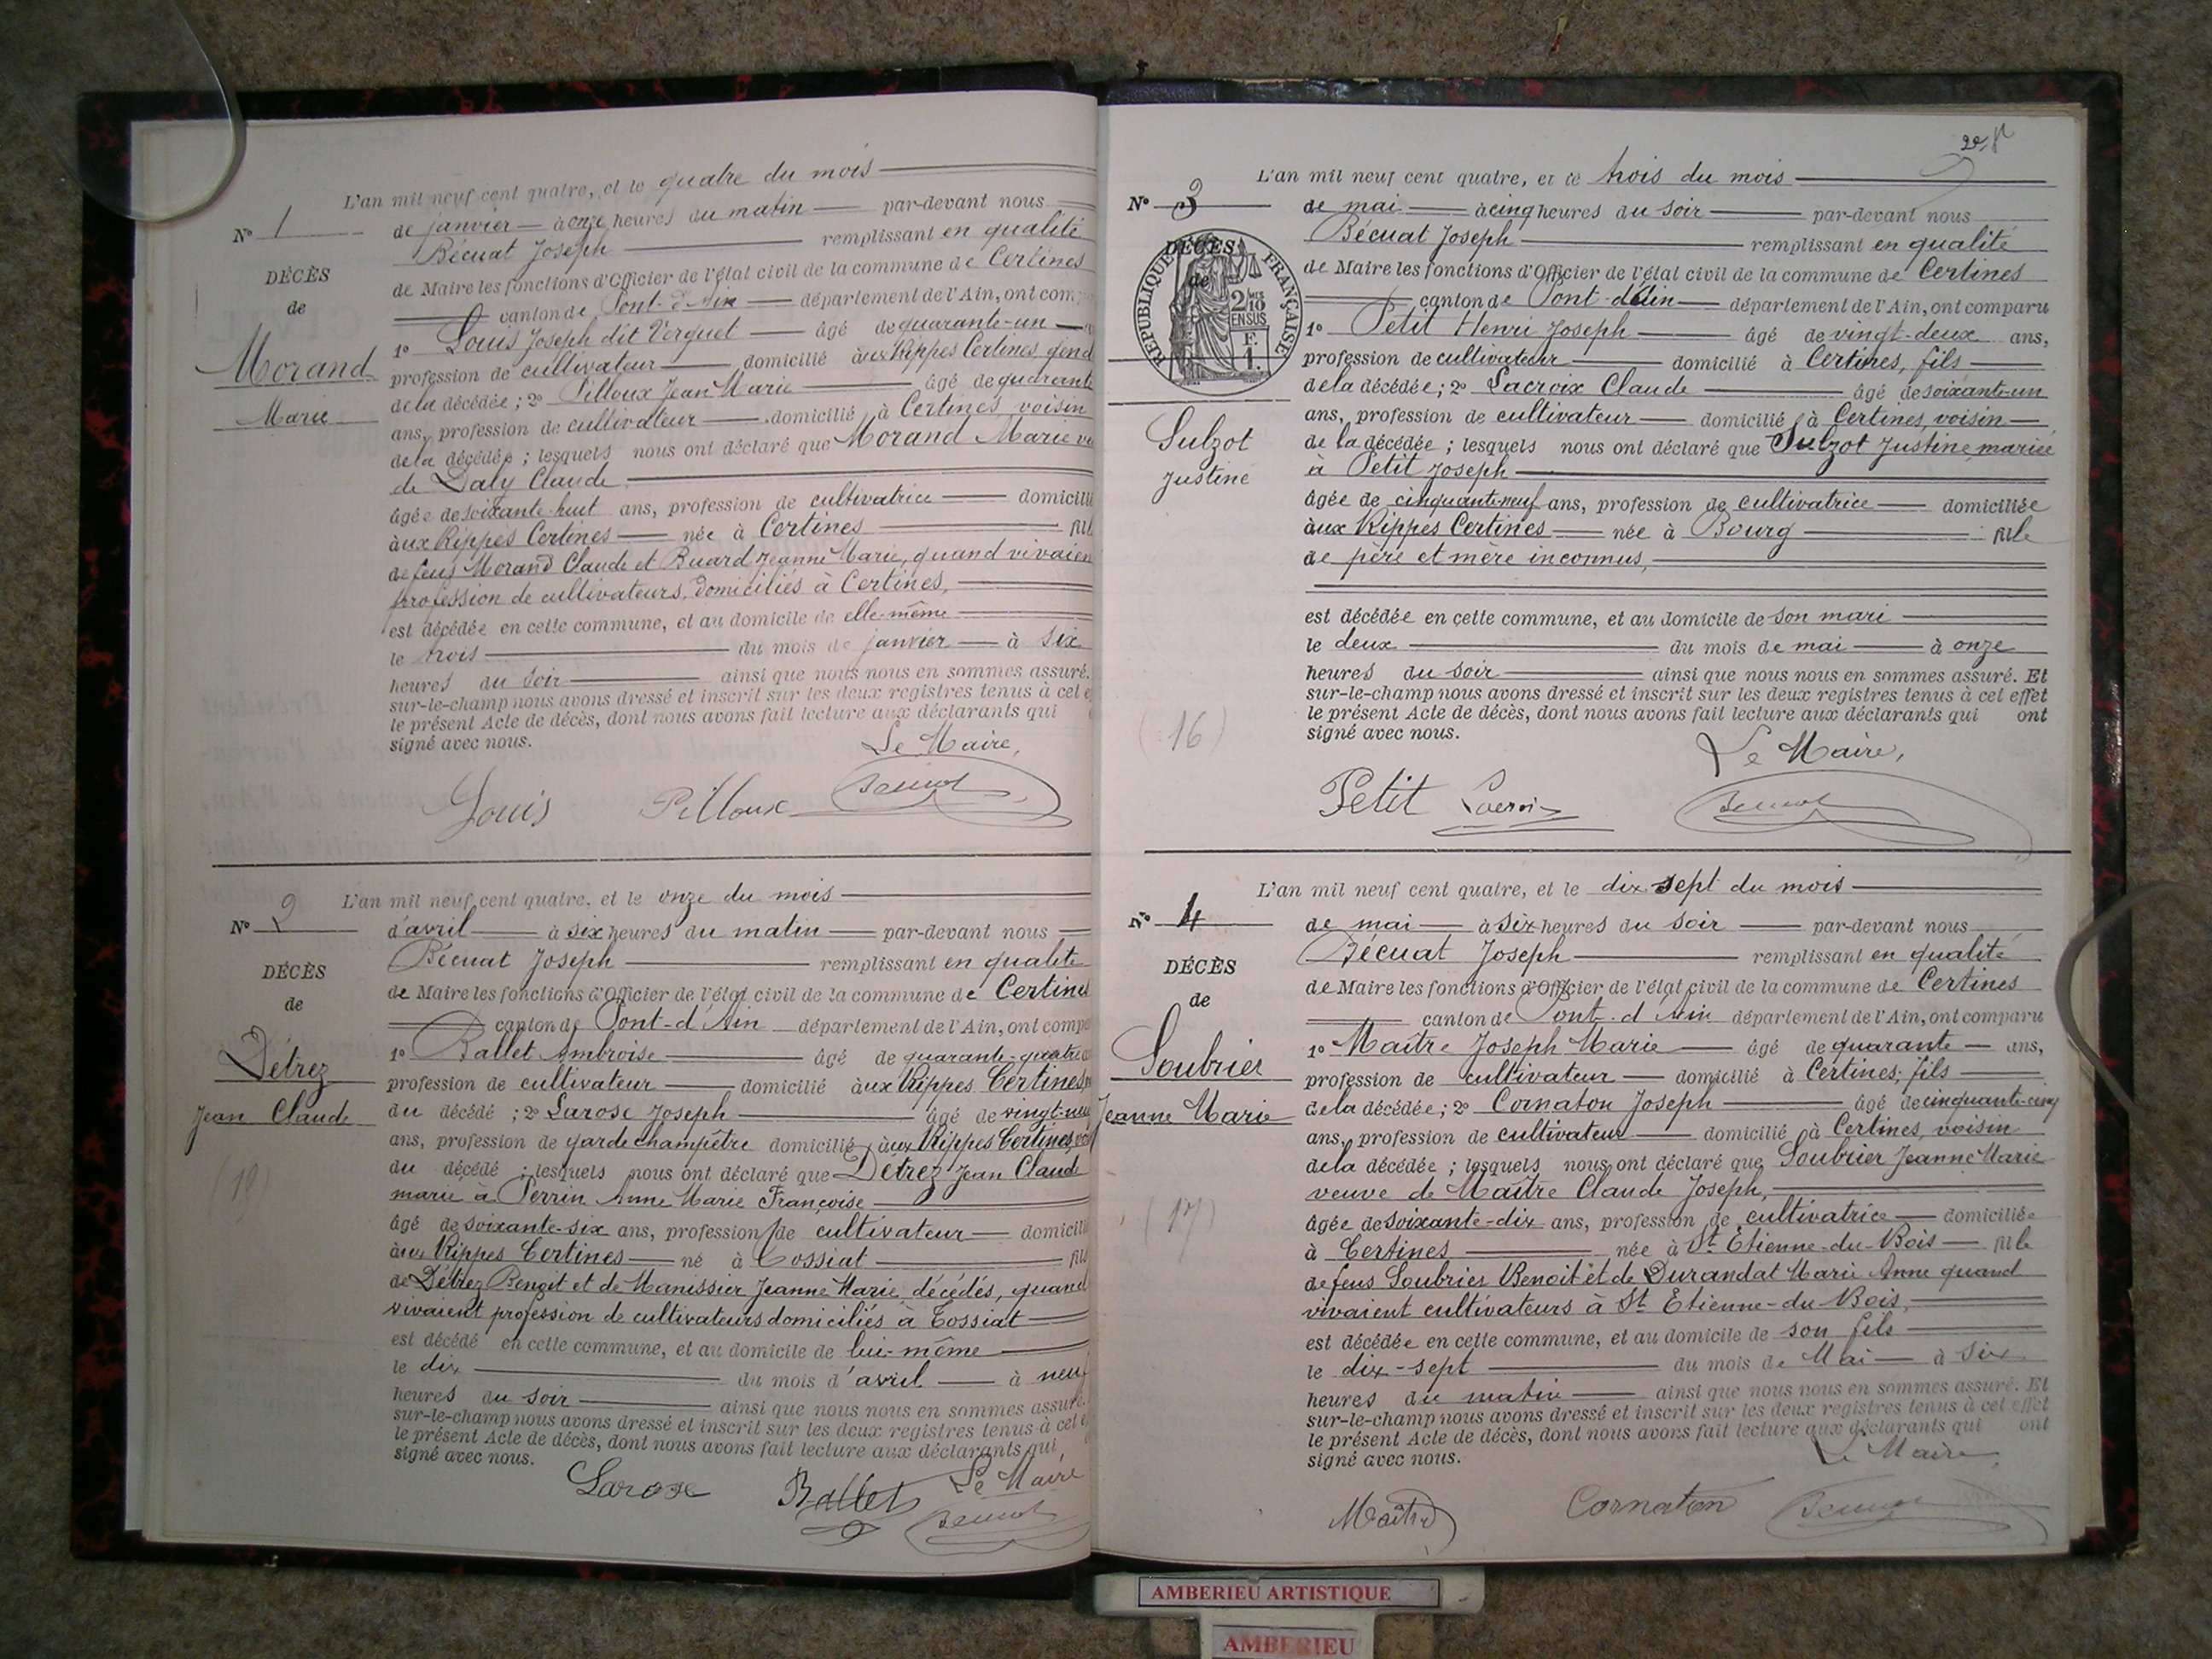 L'an mil neuf cent quatre, et le quatre du mois
N° 1
de janvier à onze heures du matin par-devant nous
Bécuat Joseph remplissant en qualité
DÉCÈS
de Maire les fonctions d'Officier de l'état civil de la commune de Certines
de
canton de Pont-d'Ain département de l'Ain, ont com
1° Louis Joseph dit Verguet âgé de quarante-un
Morand
profession de cultivateur domicilié aux Rippes Certines gend
Marie
de la décédée ; 2° Pilloux Jean Marie âgé de quarante
ans, profession de cultivateur domicilié à Certines voisin
de la décédée ; lesquels nous ont déclaré que Morand Marie ve
de Daly Claude
âgée de soixante-huit ans, profession de cultivatrice domicilié
aux Rippes Certines née à Certines fille
de feus Morand Claude et Buard Jeanne Marie, quand vivaien
profession de cultivateurs, domiciliés à Certines,
est décédée en cette commune, et au domicile de elle-même
le trois du mois de janvier à six
heures du soir ainsi que nous nous en sommes assuré.
sur-le-champ nous avons dressé et inscrit sur les deux registres tenus à cet e
le présent Acte de décès, dont nous avons fait lecture aux déclarants qui
signé avec nous.
Le Maire,
Louis Pilloux Bécuat
L'an mil neuf cent quatre, et le onze du mois
N° 2
d'avril à six heures du matin par-devant nous
Bécuat Joseph remplissant en qualité
DÉCÈS
de Maire les fonctions d'Officier de l'état civil de la commune de Certines
de
canton de Pont-d'Ain département de l'Ain, ont comp
1° Ballet Ambroise âgé de quarante-quatre
Détrez
profession de cultivateur domicilié aux Rippes Certines
Jean Claude
du décédé ; 2° Larose Joseph âgé de vingt-neu
ans, profession de garde champêtre domicilié aux Rippes Certines, voi
du décédé ; lesquels nous ont déclaré que Détrez Jean Claud
marié à Perrin Anne Marie Françoise
âgé de soixante-six ans, profession de cultivateur domicilié
aux Rippes Certines né à Tossiat fils
de Détrez Benoit et de Manissier Jeanne Marie, décédés, quand
vivaient profession de cultivateurs domiciliés à Tossiat
est décédé en cette commune, et au domicile de lui-même
le dix du mois d'avril à neu
heures du soir ainsi que nous nous en sommes assuré.
sur-le-champ nous avons dressé et inscrit sur les deux registres tenus à cet e
le présent Acte de décès, dont nous avons fait lecture aux déclarants qui
signé avec nous.
Le Maire
Larose Ballet Bécuat
L'an mil neuf cent quatre, et le trois du mois
N° 3
de mai à cinq heures du soir par-devant nous
Bécuat Joseph remplissant en qualité
DÉCÈS
de
RÉPUBLIQUE FRANÇAISE
2/10 EN SUS
F. 1.
de Maire les fonctions d'Officier de l'état civil de la commune de Certines
canton de Pont-d'Ain département de l'Ain, ont comparu
1° Petit Henri Joseph âgé de vingt-deux ans,
profession de cultivateur domicilié à Certines, fils
de la décédée ; 2° Lacroix Claude âgé de soixante-un
ans, profession de cultivateur domicilié à Certines, voisin
Sulzot
Justine
de la décédée ; lesquels nous ont déclaré que Sulzot Justine mariée
à Petit Joseph
âgée de cinquante-neuf ans, profession de cultivatrice domiciliée
aux Rippes Certines née à Bourg fille
de père et mère inconnus,
est décédée en cette commune, et au domicile de son mari
le deux du mois de mai à onze
heures du soir ainsi que nous nous en sommes assuré. Et
sur-le-champ nous avons dressé et inscrit sur les deux registres tenus à cet effet
le présent Acte de décès, dont nous avons fait lecture aux déclarants qui ont
(16)
signé avec nous.
Le Maire,
Petit Lacroix Bécuat
L'an mil neuf cent quatre, et le dix-sept du mois
N° 4
de mai à six heures du soir par-devant nous
Bécuat Joseph remplissant en qualité
DÉCÈS
de Maire les fonctions d'Officier de l'état civil de la commune de Certines
de
canton de Pont-d'Ain département de l'Ain, ont comparu
1° Maître Joseph Marie âgé de quarante ans,
Soubrier
profession de cultivateur domicilié à Certines, fils
Jeanne Marie
de la décédée ; 2° Cornaton Joseph âgé de cinquante-cinq
ans, profession de cultivateur domicilié à Certines, voisin
de la décédée ; lesquels nous ont déclaré que Soubrier Jeanne Marie
veuve de Maître Claude Joseph,
(17)
âgée de soixante-dix ans, profession de cultivatrice domiciliée
à Certines née à St Etienne-du-Bois fille
de feus Soubrier Benoit et de Durandat Marie Anne quand
vivaient cultivateurs à St Etienne-du-Bois,
est décédée en cette commune, et au domicile de son fils
le dix-sept du mois de Mai à six
heures du matin ainsi que nous nous en sommes assuré. Et
sur-le-champ nous avons dressé et inscrit sur les deux registres tenus à cet effet
le présent Acte de décès, dont nous avons fait lecture aux déclarants qui ont
signé avec nous.
Le Maire,
Maître Cornaton Bécuat
AMBERIEU ARTISTIQUE
AMBERIEU